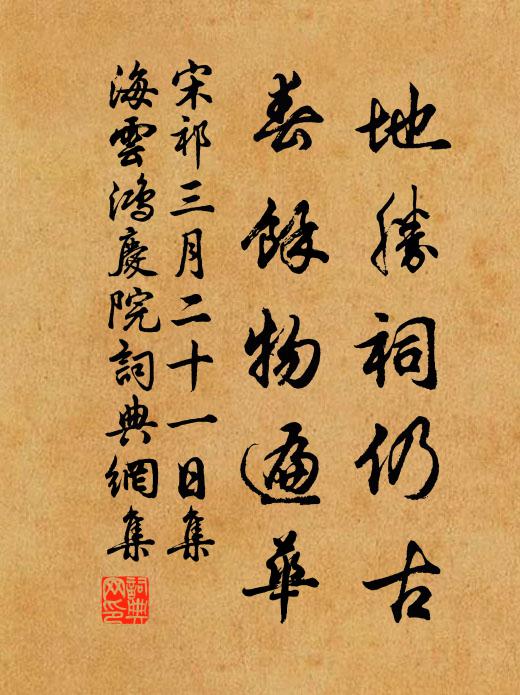 地勝祠仍古
春餘物遍華
宋祁三月二十一日集
海雲鴻慶院詞典網集
詞典网印